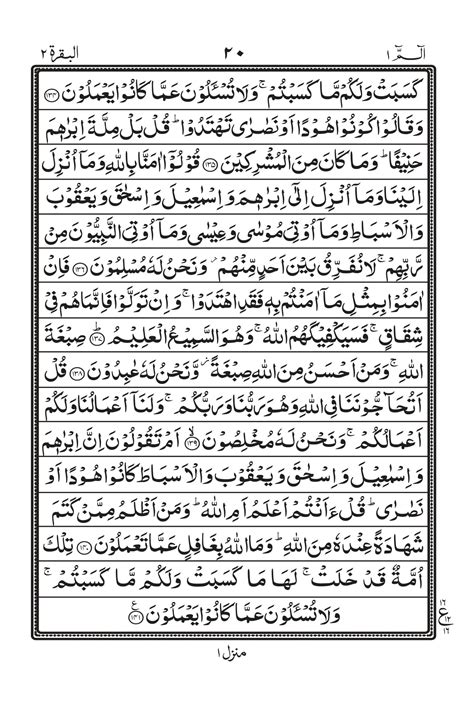 الٓـمّٓ ١ ٢٠ البقرة ٢
كَسَبَتْ وَلَكُمْ مَّا كَسَبْتُمْ ۚ وَلَا تُسْـَٔلُوْنَ عَمَّا كَانُوْا يَعْمَلُوْنَ ﴿١٣٤﴾
وَقَالُوْا كُوْنُوْا هُوْدًا اَوْ نَصٰرٰى تَهْتَدُوْا ؕ قُلْ بَلْ مِلَّةَ اِبْرٰهٖمَ
حَنِيْفًا ؕ وَمَا كَانَ مِنَ الْمُشْرِكِيْنَ ﴿١٣٥﴾ قُوْلُوْٓا اٰمَنَّا بِاللّٰهِ وَمَآ اُنْزِلَ
اِلَيْنَا وَمَآ اُنْزِلَ اِلٰٓى اِبْرٰهٖمَ وَاِسْمٰعِيْلَ وَاِسْحٰقَ وَيَعْقُوْبَ
وَالْاَسْبَاطِ وَمَآ اُوْتِيَ مُوْسٰى وَعِيْسٰى وَمَآ اُوْتِيَ النَّبِيُّوْنَ مِنْ
رَّبِّهِمْ ۚ لَا نُفَرِّقُ بَيْنَ اَحَدٍ مِّنْهُمْ ۖ وَنَحْنُ لَهٗ مُسْلِمُوْنَ ﴿١٣٦﴾ فَاِنْ
اٰمَنُوْا بِمِثْلِ مَآ اٰمَنْتُمْ بِهٖ فَقَدِ اهْتَدَوْا ۚ وَاِنْ تَوَلَّوْا فَاِنَّمَا هُمْ فِيْ
شِقَاقٍ ۚ فَسَيَكْفِيْكَهُمُ اللّٰهُ ۚ وَهُوَ السَّمِيْعُ الْعَلِيْمُ ﴿١٣٧﴾ؕ صِبْغَةَ
اللّٰهِ ۚ وَمَنْ اَحْسَنُ مِنَ اللّٰهِ صِبْغَةً ۖ وَّنَحْنُ لَهٗ عٰبِدُوْنَ ﴿١٣٨﴾ قُلْ
اَتُحَآجُّوْنَنَا فِي اللّٰهِ وَهُوَ رَبُّنَا وَرَبُّكُمْ ۚ وَلَنَآ اَعْمَالُنَا وَلَكُمْ
اَعْمَالُكُمْ ۚ وَنَحْنُ لَهٗ مُخْلِصُوْنَ ﴿١٣٩﴾ۙ اَمْ تَقُوْلُوْنَ اِنَّ اِبْرٰهٖمَ
وَاِسْمٰعِيْلَ وَاِسْحٰقَ وَيَعْقُوْبَ وَالْاَسْبَاطَ كَانُوْا هُوْدًا اَوْ
نَصٰرٰى ؕ قُلْ ءَاَنْتُمْ اَعْلَمُ اَمِ اللّٰهُ ؕ وَمَنْ اَظْلَمُ مِمَّنْ كَتَمَ
شَهَادَةً عِنْدَهٗ مِنَ اللّٰهِ ؕ وَمَا اللّٰهُ بِغَافِلٍ عَمَّا تَعْمَلُوْنَ ﴿١٤٠﴾ تِلْكَ
اُمَّةٌ قَدْ خَلَتْ ۚ لَهَا مَا كَسَبَتْ وَلَكُمْ مَّا كَسَبْتُمْ ۚ
وَلَا تُسْـَٔلُوْنَ عَمَّا كَانُوْا يَعْمَلُوْنَ ﴿١٤١﴾ ع
١٦
ع ١٢
١٦
منزل ١